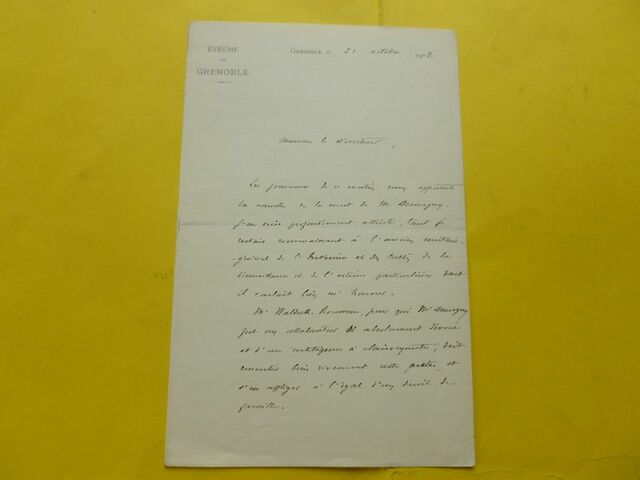 EVÊCHÉ
DE
GRENOBLE
GRENOBLE, le 21 octobre 1902
Monsieur le Directeur,
Les journaux de ce matin nous apportent
la nouvelle de la mort de M. Demagny.
J'en suis profondément attristé, tant je
restais reconnaissant à l'ancien secrétaire
général de l'Intérieur et des Cultes de la
bienveillance et de l'estime particulières dont
il voulait bien m'honorer.
Mr Waldeck-Rousseau, pour qui Mr Demagny
fut un collaborateur si absolument dévoué
et d'une intelligence si clairvoyante, doit
ressentir bien vivement cette perte et
s'en affliger à l'égal d'un deuil de
famille.